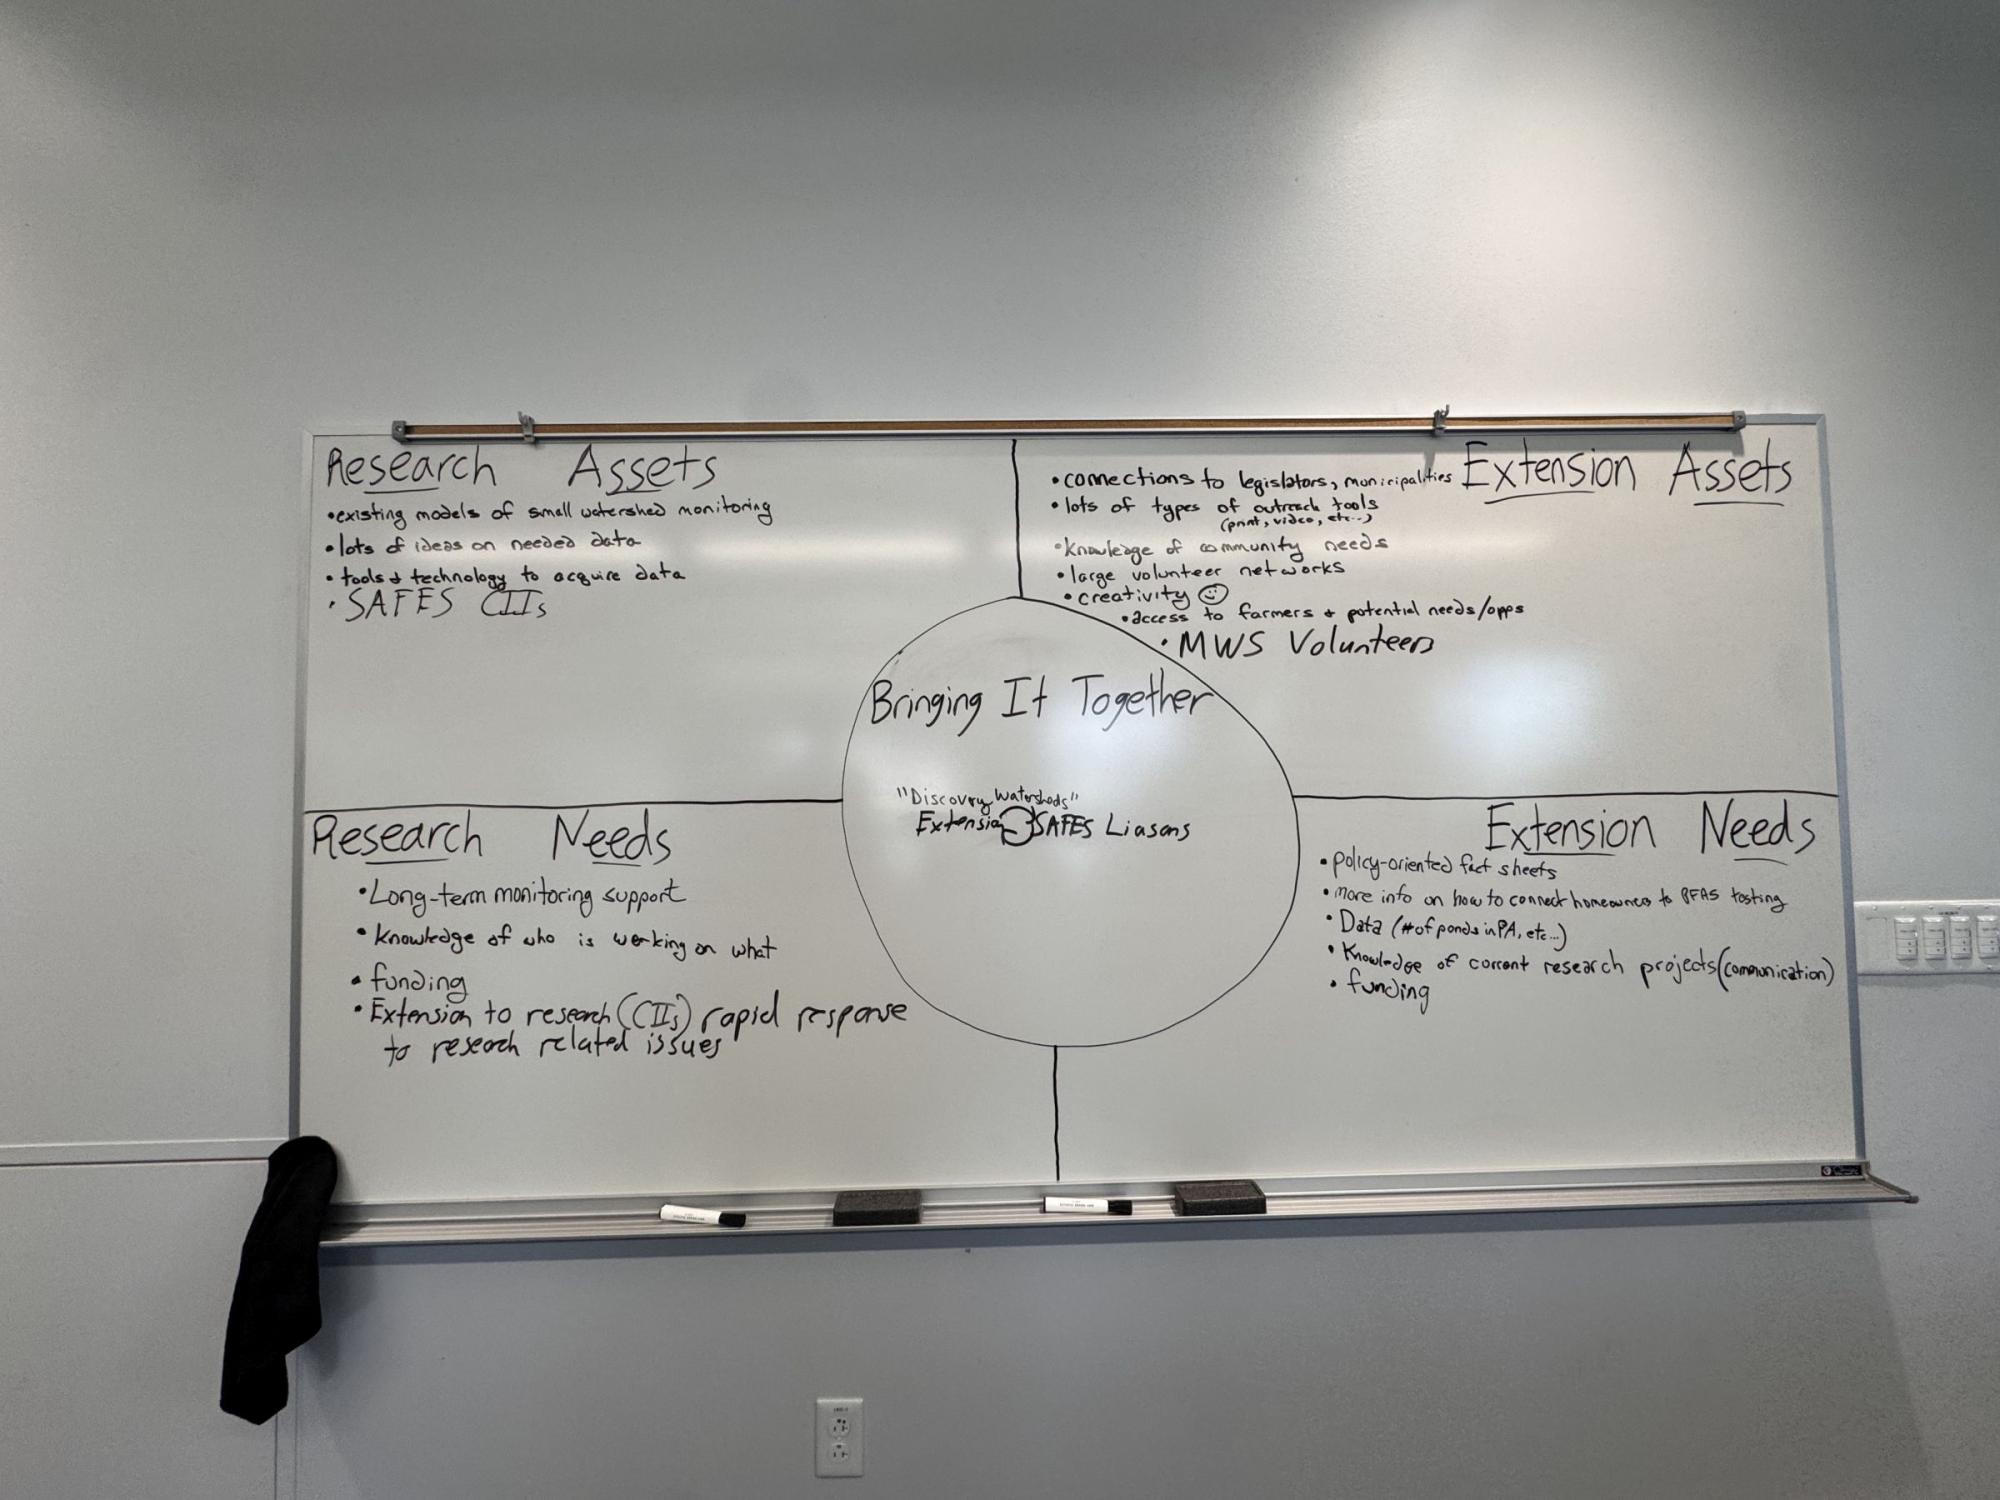 Research Assets
•existing models of small watershed monitoring
•lots of ideas on needed data
•tools + technology to acquire data
•SAFES CIIs
Extension Assets
•connections to legislators, municipalities
•lots of types of outreach tools
(print, video, etc...)
•knowledge of community needs
•large volunteer networks
•creativity ☺
•access to farmers + potential needs/opps
•MWS Volunteers
Bringing It Together
"Discovery Watersheds"
Extension SAFES Liasons
Research Needs
•Long-term monitoring support
•knowledge of who is working on what
•funding
•Extension to research (CIIs) rapid response
to research related issues
Extension Needs
•policy-oriented fact sheets
•more info on how to connect homeowners to PFAS testing
•Data (# of ponds in PA, etc...)
•Knowledge of current research projects (communication)
•funding